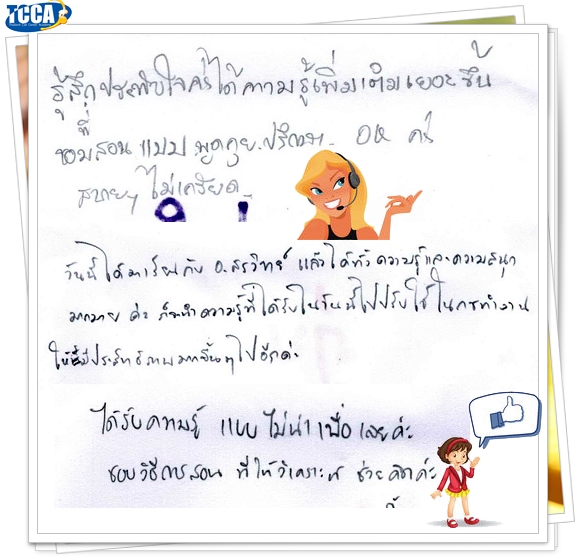 TCCA
รู้สึกประทับใจค่ะได้ความรู้เพิ่มเติมเยอะขึ้น
ชอบที่สอน แบบ พูดคุย-ปรึกษา. OK ค่ะ
สบายๆ ไม่เครียด
วันนี้ได้มาเรียนกับ อ.สรวิทย์ แล้วได้ทั้งความรู้และความสนุก
มากมาย ค่ะ ก็จะนำความรู้ที่ได้รับในวันนี้ไปปรับใช้ ในการทำงาน
ให้มีประสิทธิภาพมากขึ้นๆไปอีกค่ะ
ได้รับความรู้ แบบ ไม่น่าเบื่อ เลยค่ะ
ชอบวิธีการสอน ที่ให้วิเคราะห์ ช่วยคิดค่ะ